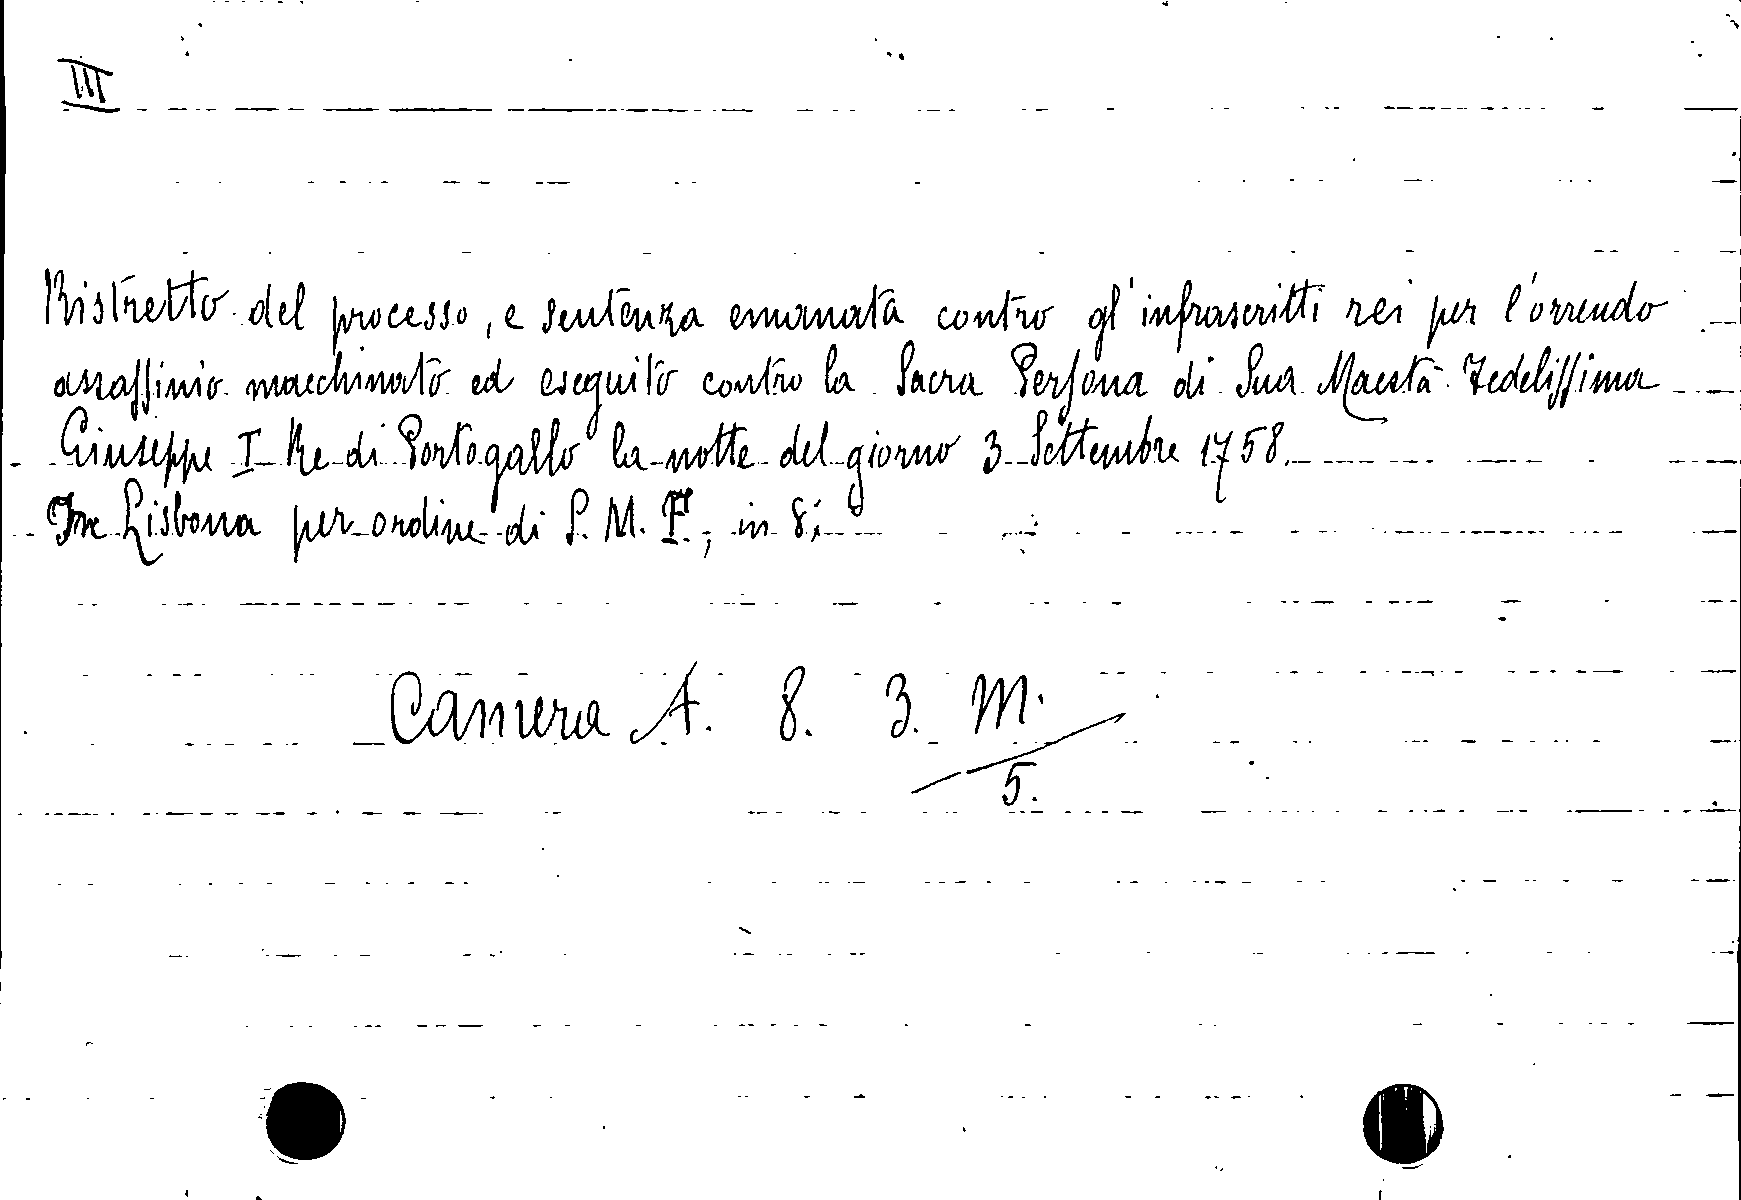 III
Ristretto del processo, e sentenza emanata contro gl'infrascritti rei per l'orrendo
assassinio macchinato ed eseguito contro la Sacra Persona di Sua Maestà Fedelissima
Giuseppe I Re di Portogallo la notte del giorno 3 Settembre 1758.
In Lisbona per ordine di S. M. F., in 8;
Camera A. 8. 3. M.
5.